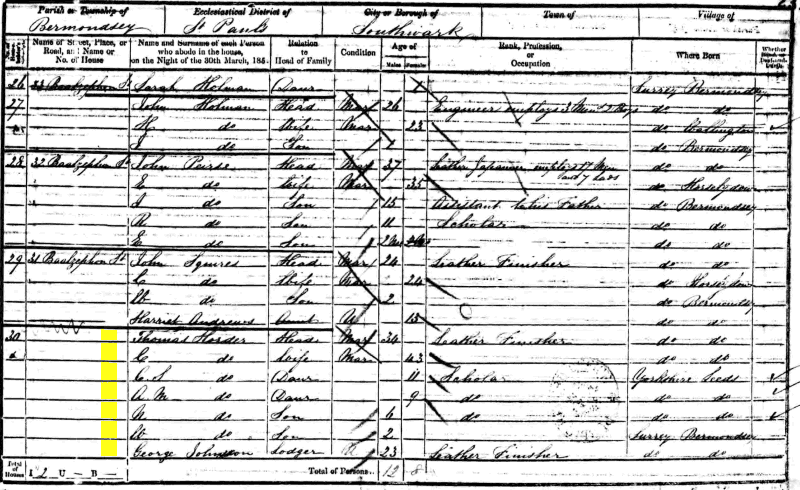 Parish or Township of Ecclesiastical District of City or Borough of Town Village of
Bermondsey St Pauls Southwark
Name of Street, Place, or Road, and Name or No. of House
Name and Surname of each Person who abode in the house, on the Night of the 30th March, 185
Relation to Head of Family
Condition
Age of
Males Females
Rank, Profession, or Occupation
Where Born
Whether
26 33 Baalzephon St Sarah Holman Daur Surrey Bermondsey
27 John Holman Head Mar 26 Engineer employs do do
H do Wife Mar 23 do
J do Son do Bermondsey
28 32 Baalzephon St John Peirse Head Mar 37 Leather Japanner do do
E do Wife Mar 35 do Horselydown
J do Son 15 Assistant to his Father do Bermondsey
R do Son 11 Scholar do do
E do Son do do
29 31 Baalzephon St John Squires Head Mar 24 Leather Finisher do do
C do Wife Mar 24 do
W do Son 2 do Bermondsey
Harriet Andrews Aunt U 15 do do
30 Thomas Horder Head Mar 34 Leather Finisher do do
C do Wife Mar 43 do do
C S do Daur 11 Scholar Yorkshire Leeds
A M do Daur 9 do do do
N do Son 6 do do do
W do Son 2 Surrey Bermondsey
George Johnson Lodger U 23 Leather Finisher do do
Total of Houses I 2 U - B - Total of Persons 12 8